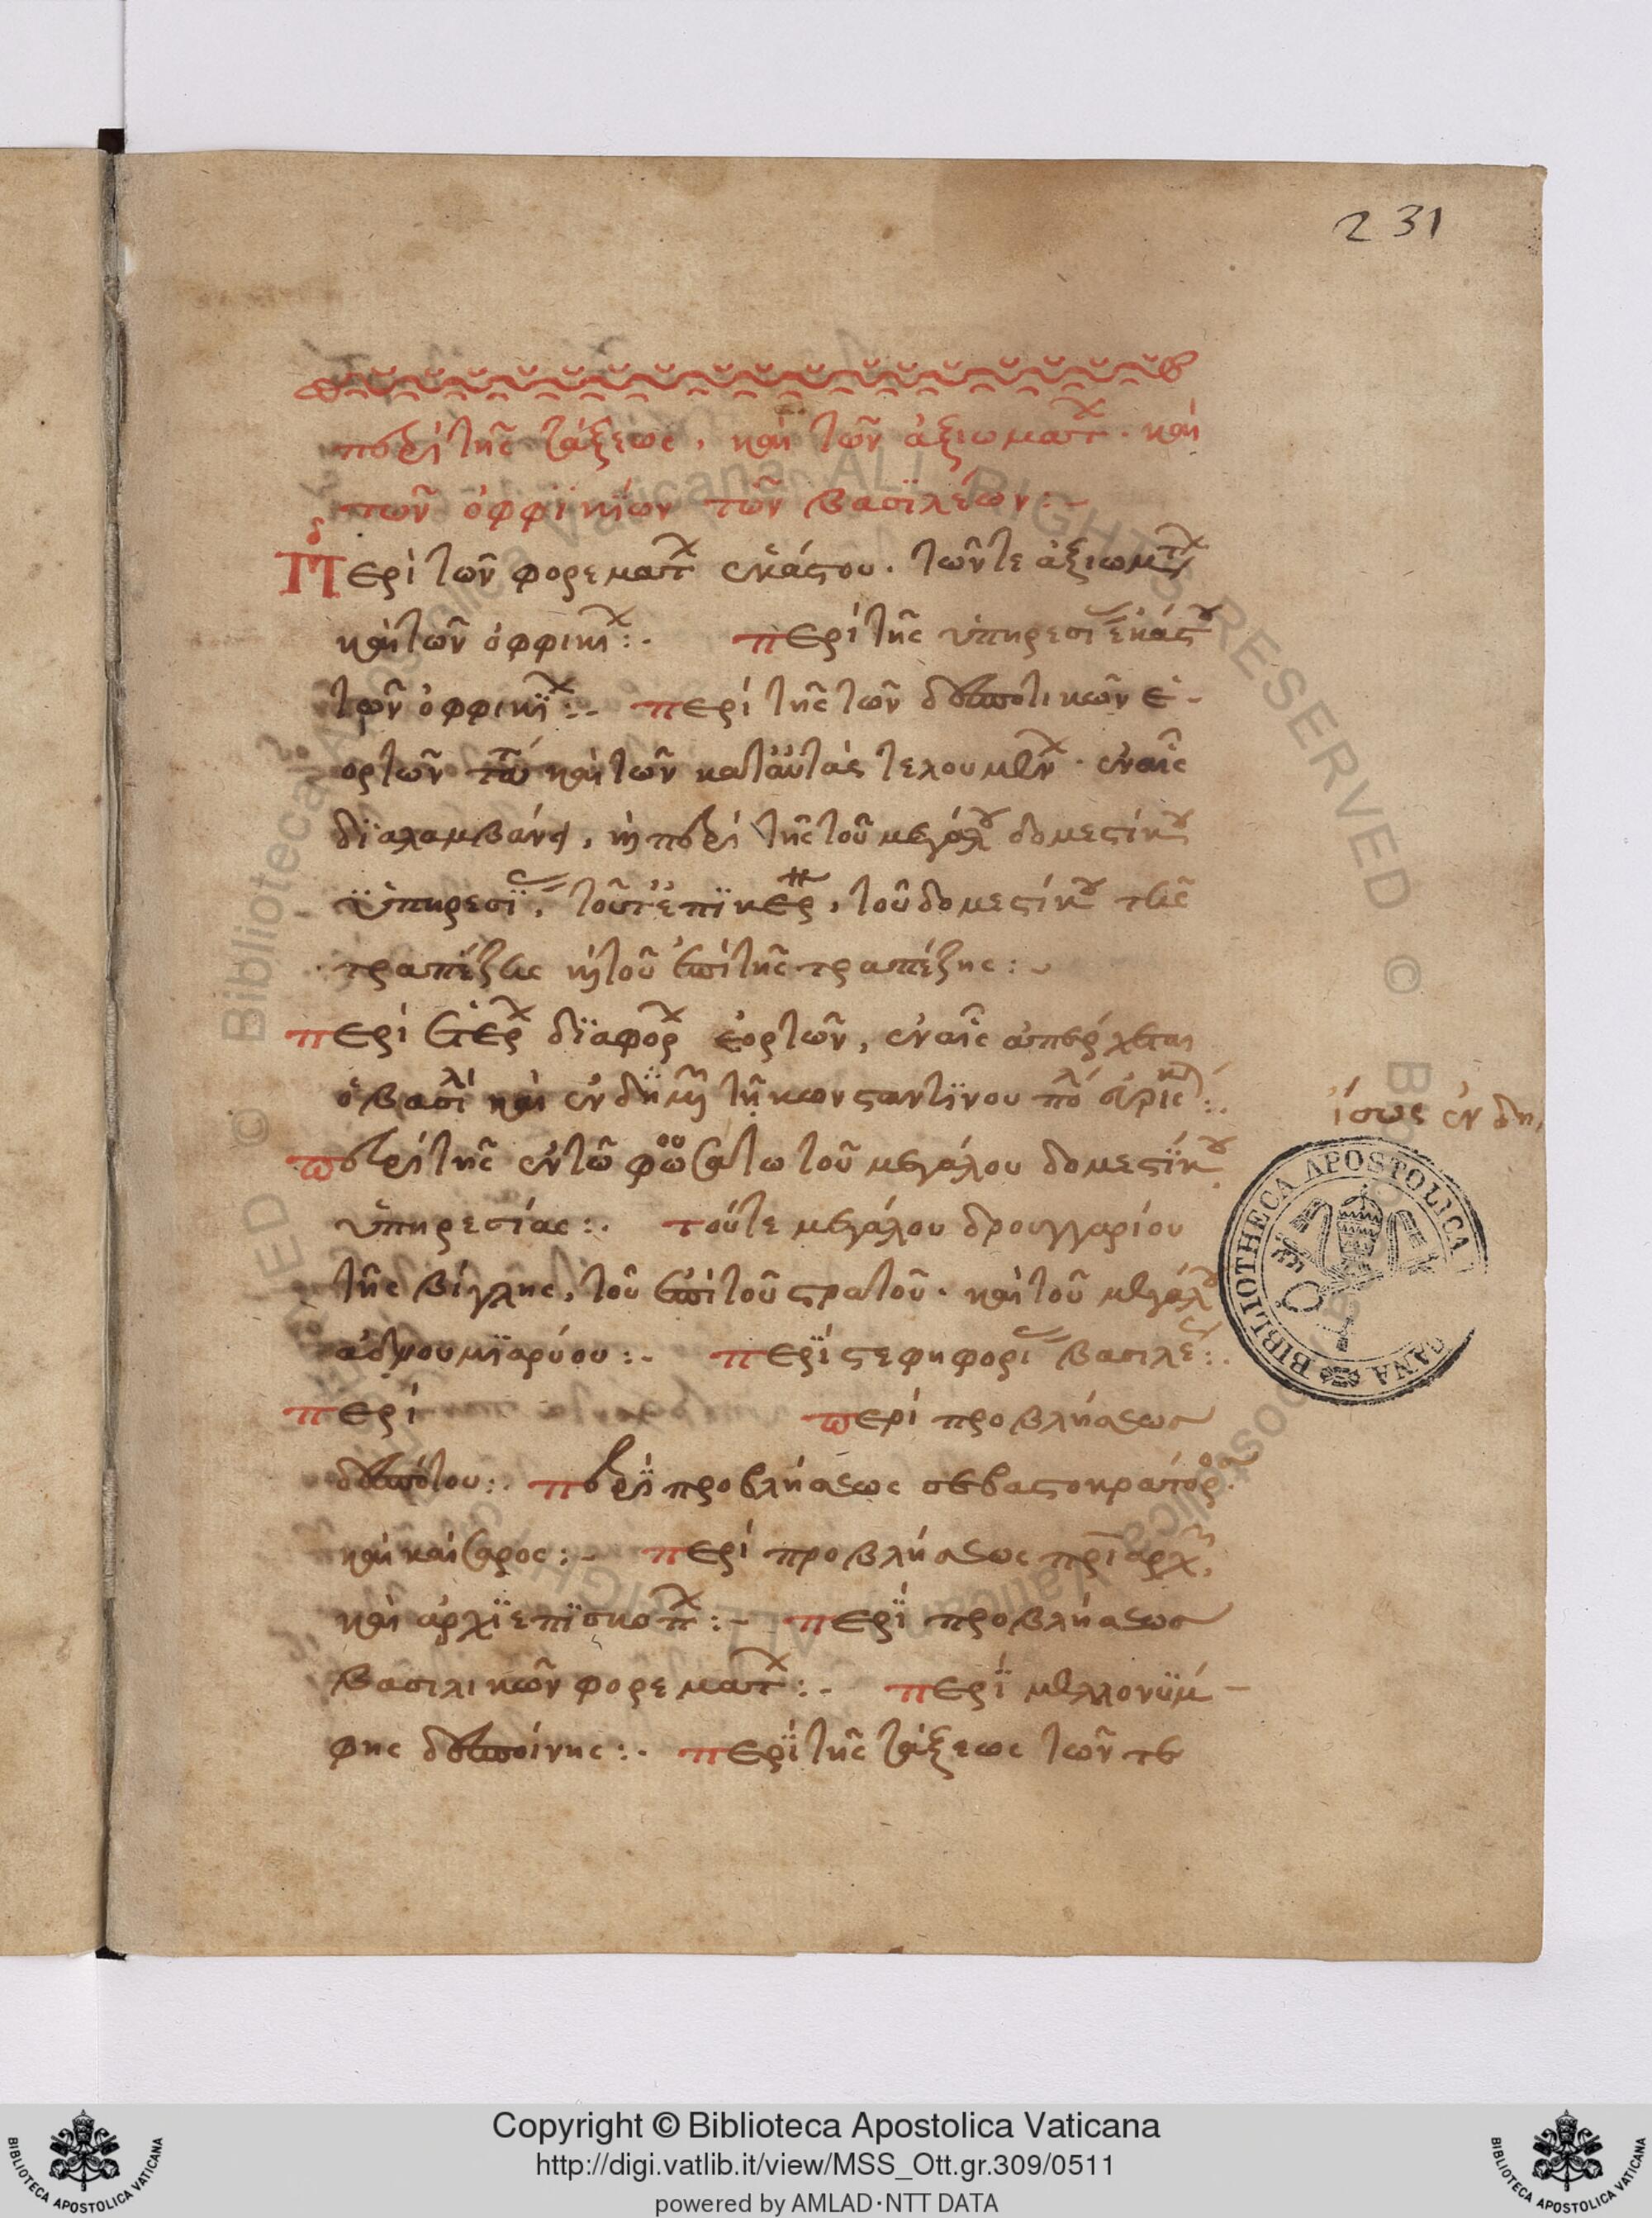 231
περὶ τῆς τάξεως, καὶ τῶν ἀξιωματ. καὶ
τῶν ὀφφικίων τῶν βασιλέων:-
Περὶ τῶν φορεματ ἑκάστου. τῶν τε ἀξιωματ
καὶ τῶν ὀφφικι:- περὶ τῆς ὑπηρεσι ἑκάστου
τῶν ὀφφικι:- περὶ τῆς τῶν δεσποτικῶν ἑ-
ορτῶν καὶ τῶν κατ' αὐτὰς τελουμεν. ἐν αἷς
διαλαμβάνει, καὶ περὶ τῆς τοῦ μεγάλου δομεστίκου
ὑπηρεσι, τοῦ ἐπικερ, τοῦ δομεστίκου τῆς
τραπέζης καὶ τοῦ ἐπὶ τῆς τραπέζης:-
περὶ ἑτερ διαφορ ἑορτῶν, ἐν αἷς ἀπέρχεται
ὁ βασιλ καὶ τῆ κωνσταντίνου
περὶ τῆς ἐν τῶ φωσσάτω τοῦ μεγάλου δομεστίκου
ὑπηρεσίας:. τοῦ τε μεγάλου δρουγγαρίου
τῆς βίγλης, τοῦ ἐπὶ τοῦ στρατοῦ. καὶ τοῦ μεγάλου
ἀδνουμιαρύου:- περὶ στεφηφορι βασιλε:.
περὶ περὶ προβλήσεως
δεσπότου:. περὶ προβλήσεως σεβαστοκράτορος
καὶ καίσαρος:- περὶ προβλήσεως πριαρχ,
καὶ ἀρχιεπισκοπ:- περὶ προβλήσεως
βασιλικῶν φορεματ:- περὶ μελλονύμ-
φης δεσποίνης:- περὶ τῆς τάξεως τῶν τε
ἴσως ἐν δη
BIBLIOTHECA APOSTOLICA VATICANA
Copyright © Biblioteca Apostolica Vaticana
http://digi.vatlib.it/view/MSS_Ott.gr.309/0511
powered by AMLAD·NTT DATA
BIBLIOTECA APOSTOLICA VATICANA
BIBLIOTECA APOSTOLICA VATICANA